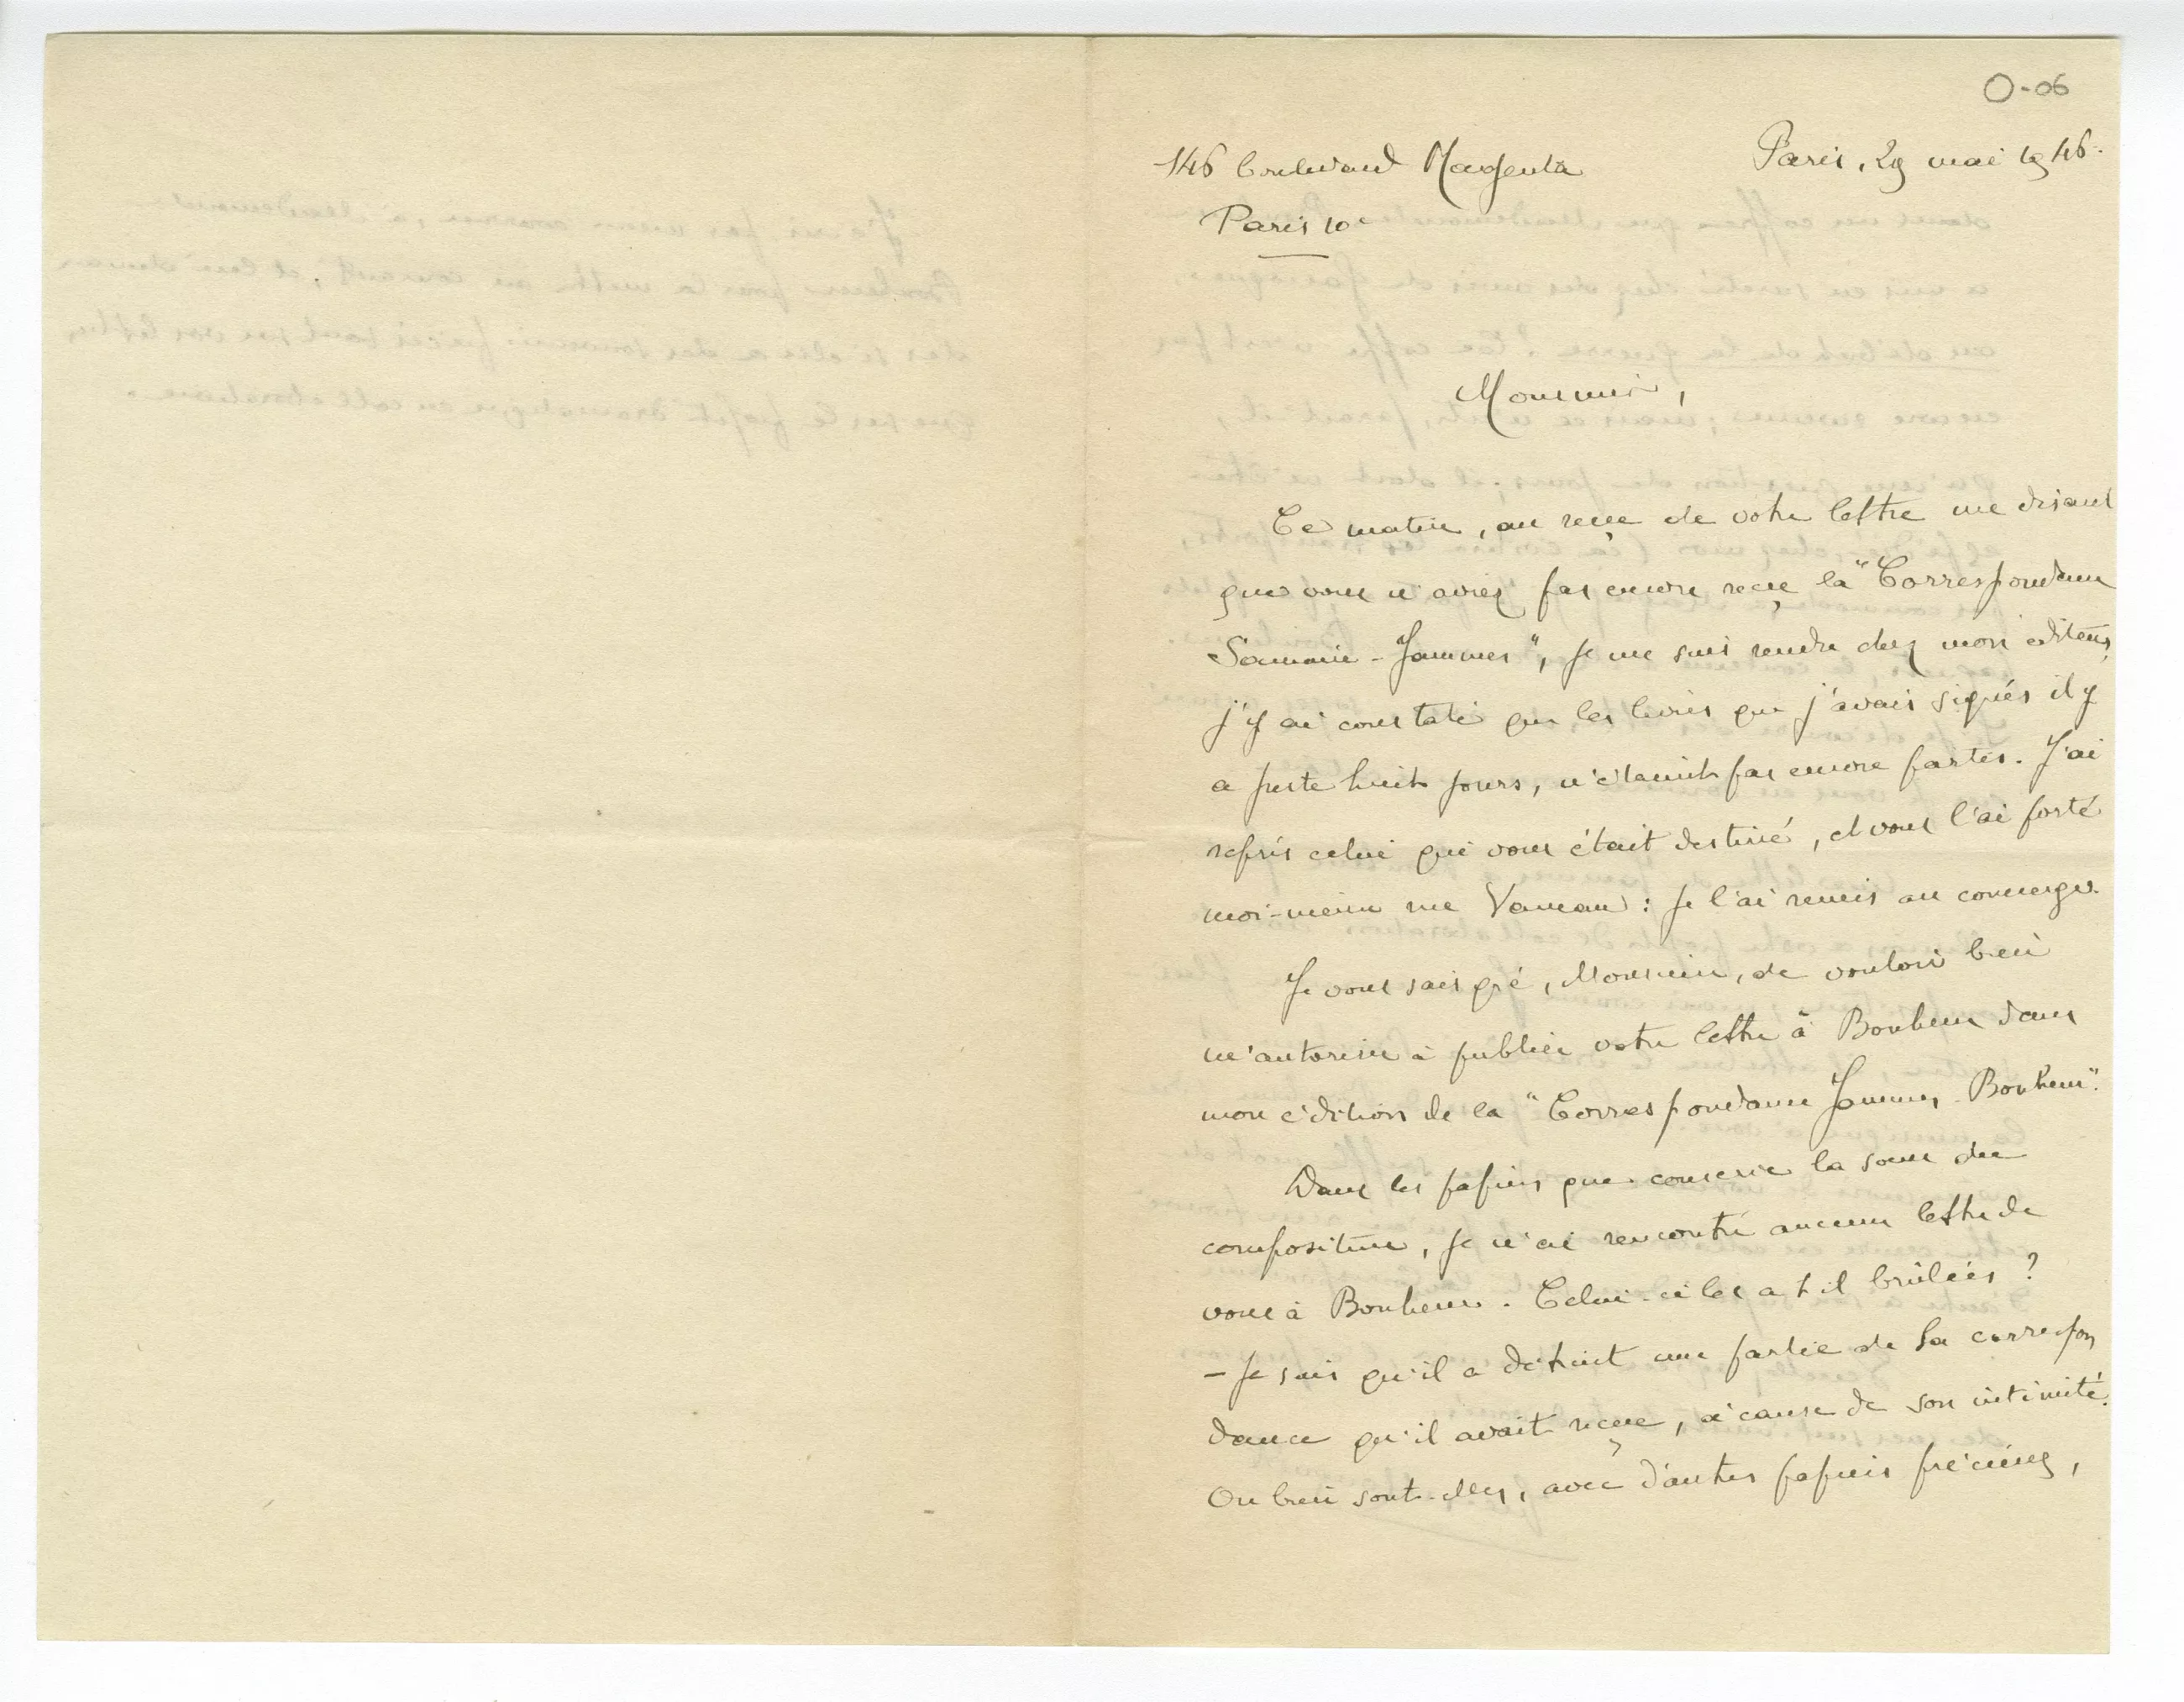 O-06
146 boulevard Magenta
Paris, 29 mai 1946.
Paris 10e
Monsieur,
Ce matin, au reçu de votre lettre me disant
que vous n'aviez pas encore reçu la "Correspondance
Samain-Jammes", je me suis rendu chez mon éditeur,
j'y ai constaté que les livres que j'avais signés il y
a juste huit jours, n'étaient pas encore partis. J'ai
repris celui qui vous était destiné, et vous l'ai porté
moi-même rue Vaneau : je l'ai remis au concierge.
Je vous sais gré, Monsieur, de vouloir bien
m'autoriser à publier votre lettre à Bonheur dans
mon édition de la "Correspondance Jammes-Bonheur".
Dans les papiers que conserve la sœur du
compositeur, je n'ai rencontré aucune lettre de
vous à Bonheur. Celui-ci les a t il brûlées ?
– Je sais qu'il a détruit une partie de sa correspon
dance qu'il avait reçue, à cause de son intimité.
Ou bien sont-elles, avec d'autres papiers précieux,